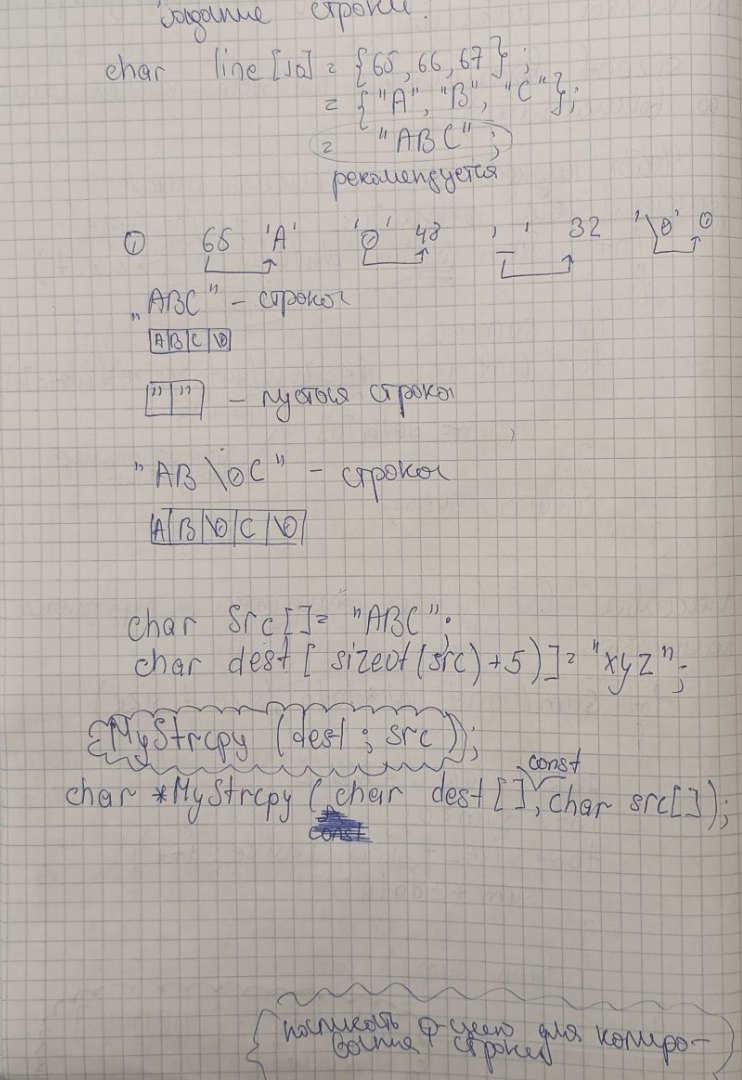 создание строки.
char line [10] = {65, 66, 67};
= {"A", "B", "C"};
= "ABC";
рекомендуется
① 65 'A' '0' 48 ' ' 32 '\0' 0
"ABC" - строка
A B C \0
" " - пустая строка
"AB\0C" - строка
A B \0 C \0
char src[] = "ABC";
char dest [sizeof(src)+5)] = "xyz";
MyStrcpy (dest; src);
const
char *MyStrcpy (char dest [], char src[]);
const
написать ф-цию для копиро-
вания строки